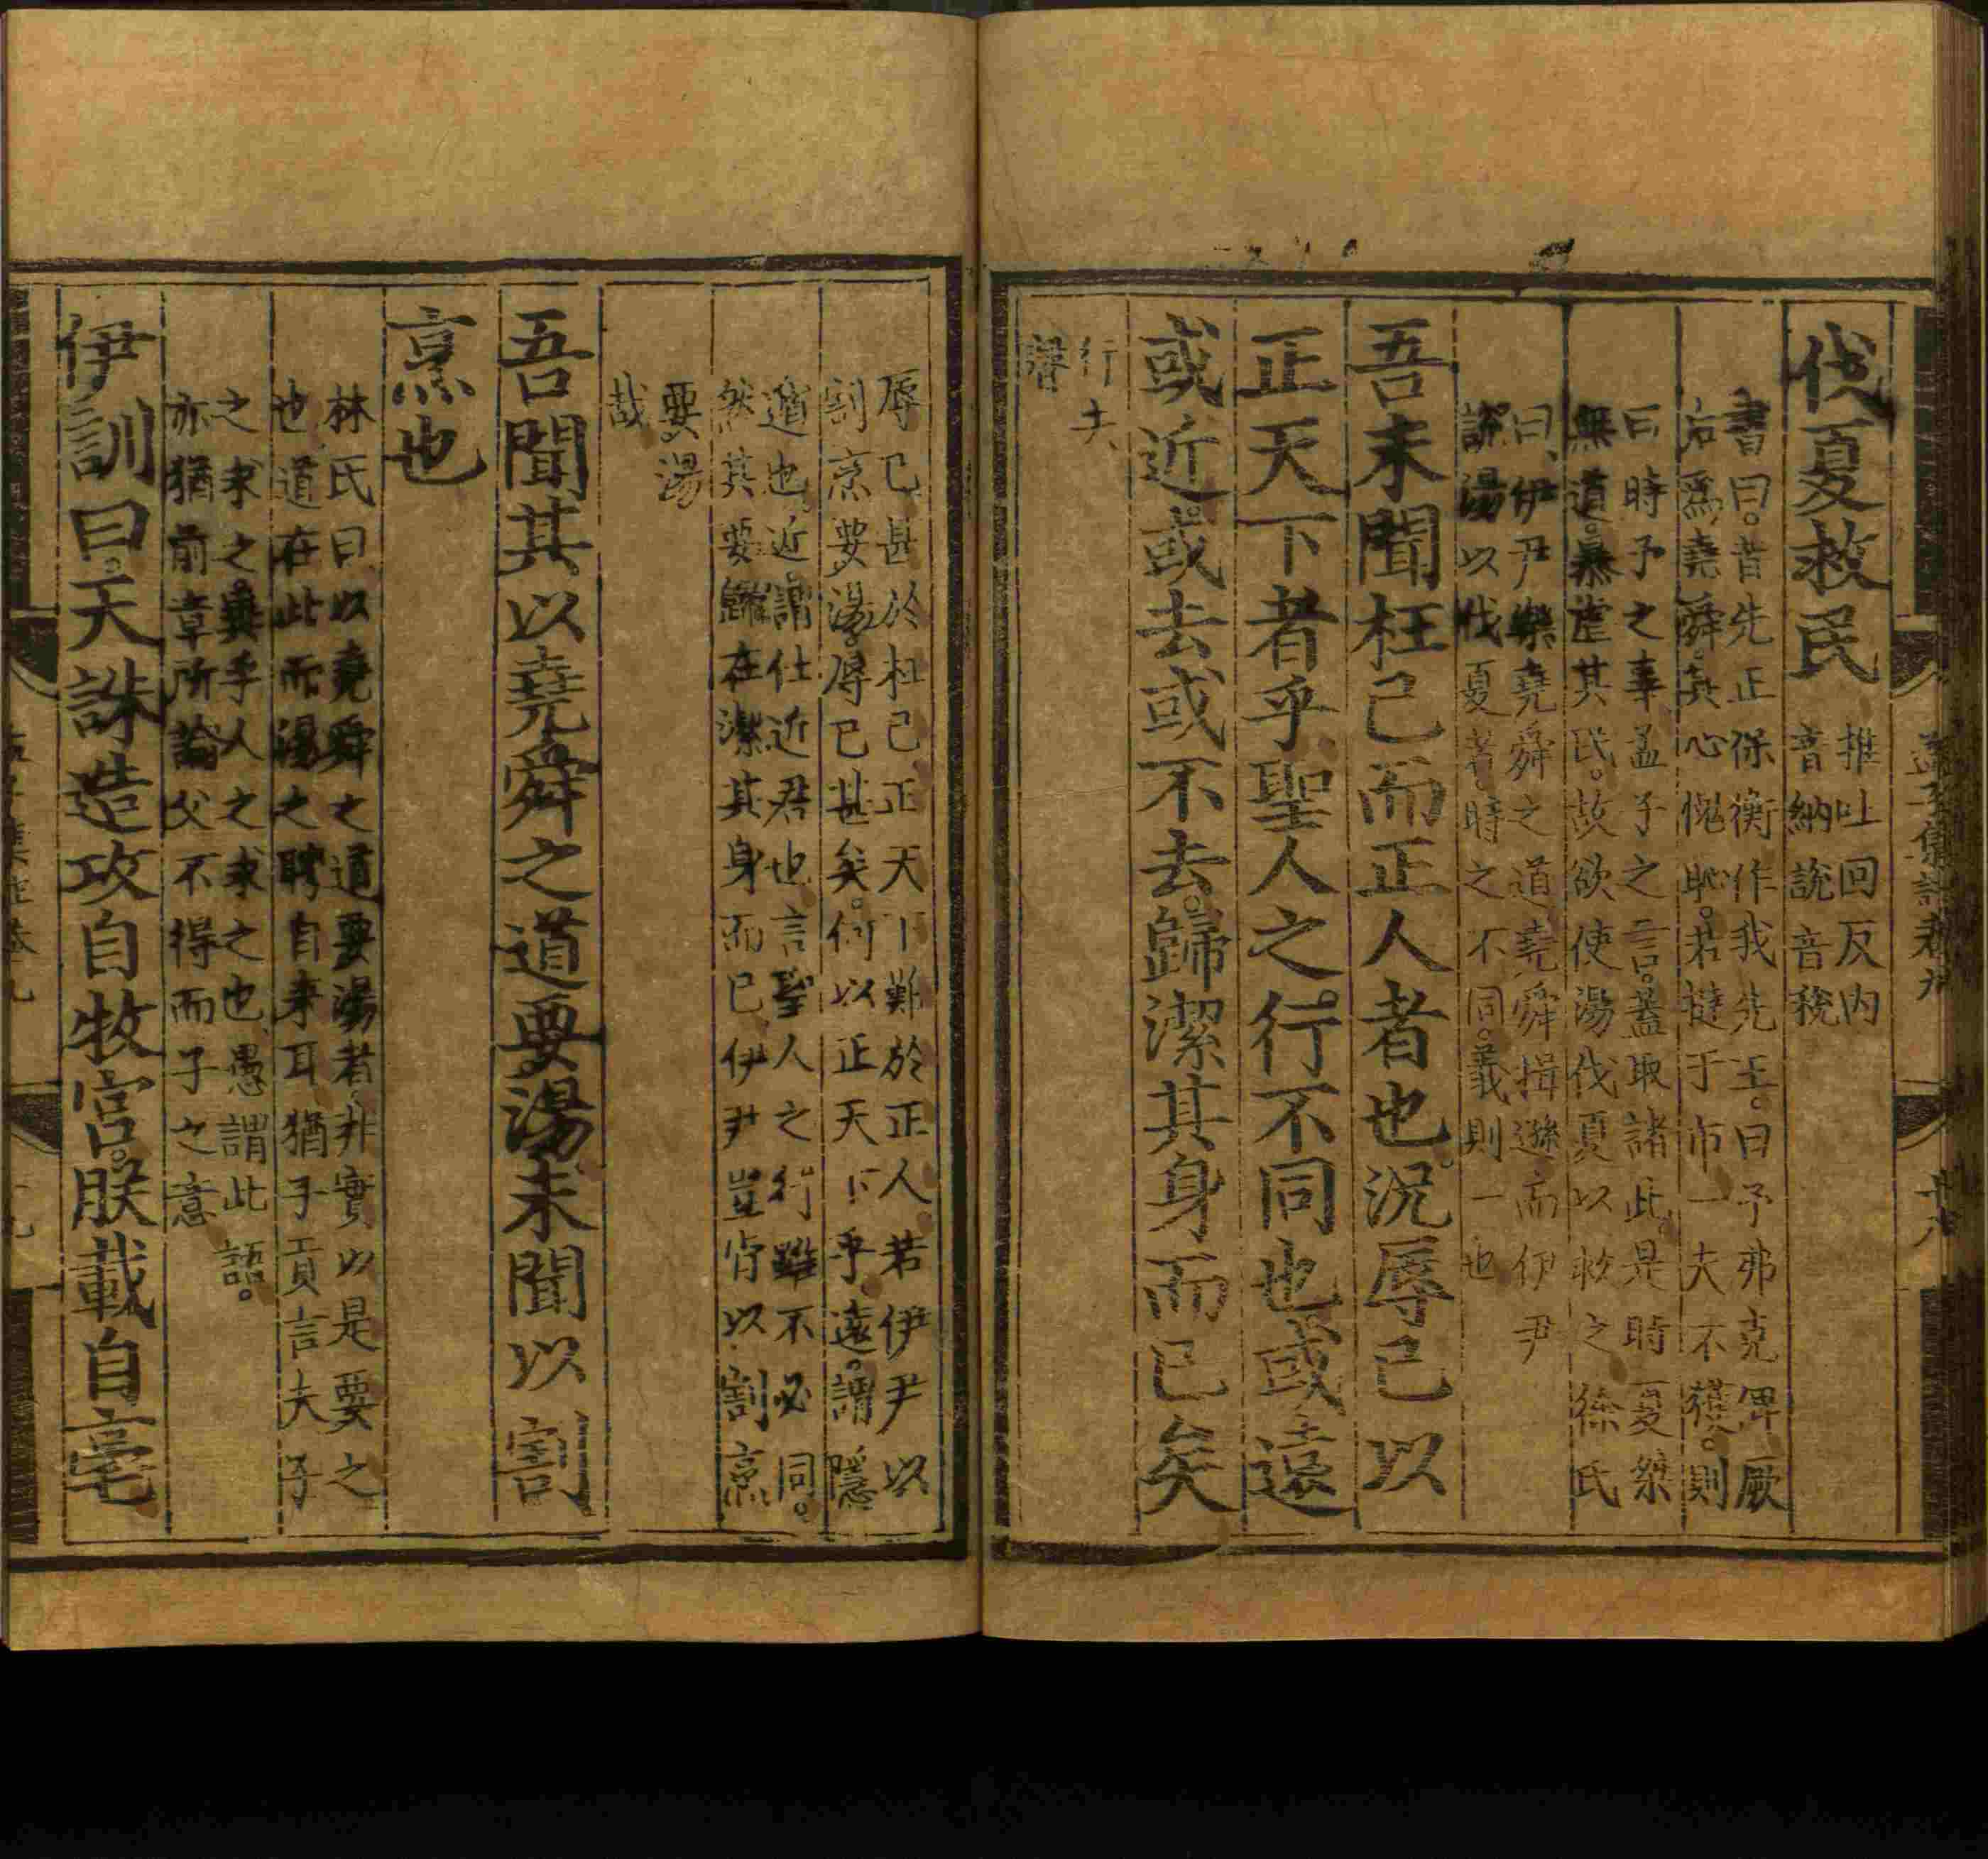 伐夏救民
推吐回反内
音納說音稅
書曰。昔先正保衡作我先王。曰予弗克俾厥
后爲堯舜。其心愧恥。若撻于市一夫不獲。則
曰時予之辜孟子之言。蓋取諸此。是時夏桀
無道。暴虐其民。故欲使湯伐夏以救之徐氏
曰、伊尹樂堯舜之道堯舜揖遜而伊尹
說湯以伐夏者。時之不同。義則一也
吾未聞枉己而正人者也。況辱己以
正天下者乎聖人之行不同也或遠
或近。或去或不去。歸潔其身而已矣
行去
聲
辱己甚於枉己正天下難於正人若伊尹以
割烹要湯。辱己甚矣。何以正天下乎遠。謂隱
遁也近謂仕近君也言聖人之行雖不必同。
然其要歸在潔其身而已伊尹豈肯以割烹
要湯
哉
吾聞其以堯舜之道要湯未聞以割
烹也
林氏曰以堯舜之道要湯者。非實以是要之
也道在此而湯之聘自來耳猶子貢言夫子
之求之。異乎人之求之也愚謂此語。
亦猶前章所論父不得而子之意
伊訓曰。天誅造攻自牧宮。朕載自亳
孟子集註卷九
十八